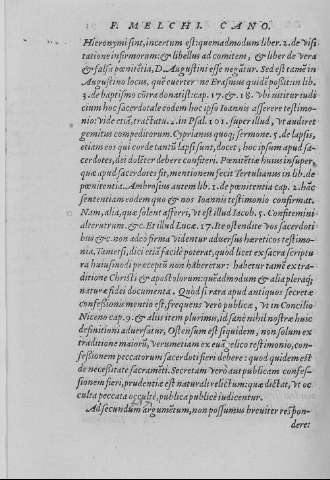 F. MELCHI. CANO.
Hieronymi sint, incertum est: quemadmodum liber. 2. de visi
tatione infirmorum: & libellus ad comitem, & liber de vera
& falsa pœnitẽtia, D. Augustini esse negãtur. Sed est tamẽ in
Augustino locus, quẽ euertere ne Erasmus quidẽ possit in lib.
3. de baptismo cõtra donatist: cap. 17. & 18. Vbi vtitur iudi
cium hoc sacerdotale eodem hoc ipso Ioannis asserere testimo-
nio: Vide etiã, tractatu. in Psal. 101. super illud, Vt audiret
gemitus compeditorum. Cyprianus quoq; sermone. 5. de lapsis,
etiam eos qui corde tantũ lapsi sunt, docet, hoc ipsum apud sa-
cerdotes, dei dolẽter debere confiteri. Pœnitẽtiæ huius insuper,
quæ apud sacerdotes fit, mentionem fecit Tertulianus in lib. de
pœnitentia. Ambrosius autem lib. 2. de pœnitentia cap. 2. hãc
sententiam eodem quo & nos Ioannis testimonio confirmat.
Nam, alia, quæ solent afferri, vt est illud Iacob. 5. Confitemini
alterutrum. &c. Et illud Lucæ. 17. Ite ostendite vos sacerdoti
bus &c. non adeo firma videntur aduersus hæreticos testimo-
nia, Tametsi, dici etiã facile poterat, quod licet ex sacra scriptu
ra huiusmodi præceptũ non haberetur: habetur tamẽ ex tra-
ditione Christi & apostolorum: quẽadmodum & alia pleraq;
naturæ fidei documenta. Quòd si rara apud antiquos secretæ
confessionis mentio est, frequens verò publicæ, vt in Concilio
Niceno cap. 9. & aliàs item plurimis, id sanè nihil nostræ huic
definitioni aduersatur, Ostensum est siquidem, non solum ex
traditione maiorũ, verumetiam ex euãgelico testimonio, con-
fessionem peccatorum sacerdoti fieri debere: quod quidem est
de necessitate sacramẽti. Secretam verò aut publicam confes-
sionem fieri, prudentiæ est naturali relictum: quæ dictat, vt oc-
culta peccata occultè, publica publicè iudicentur.
Ad secundum argumẽtum, non possumus breuiter respon-
deret